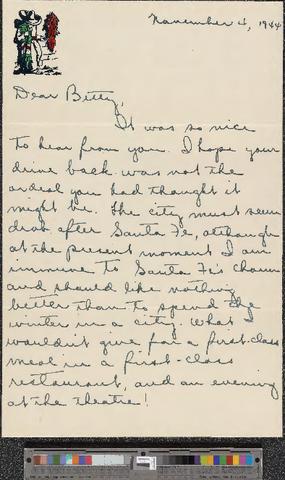 November 4, 1944
Dear Betty,
It was so nice
to hear from you. I hope your
drive back was not the
ordeal you had thought it
might be. The city must seem
drab after Santa Fe, although
at the present moment I am
immune to Santa Fe's charm
and should like nothing
better than to spend the
winter in a city. What I
wouldn't give for a first-class
meal in a first-class
restaurant, and an evening
at the theatre!